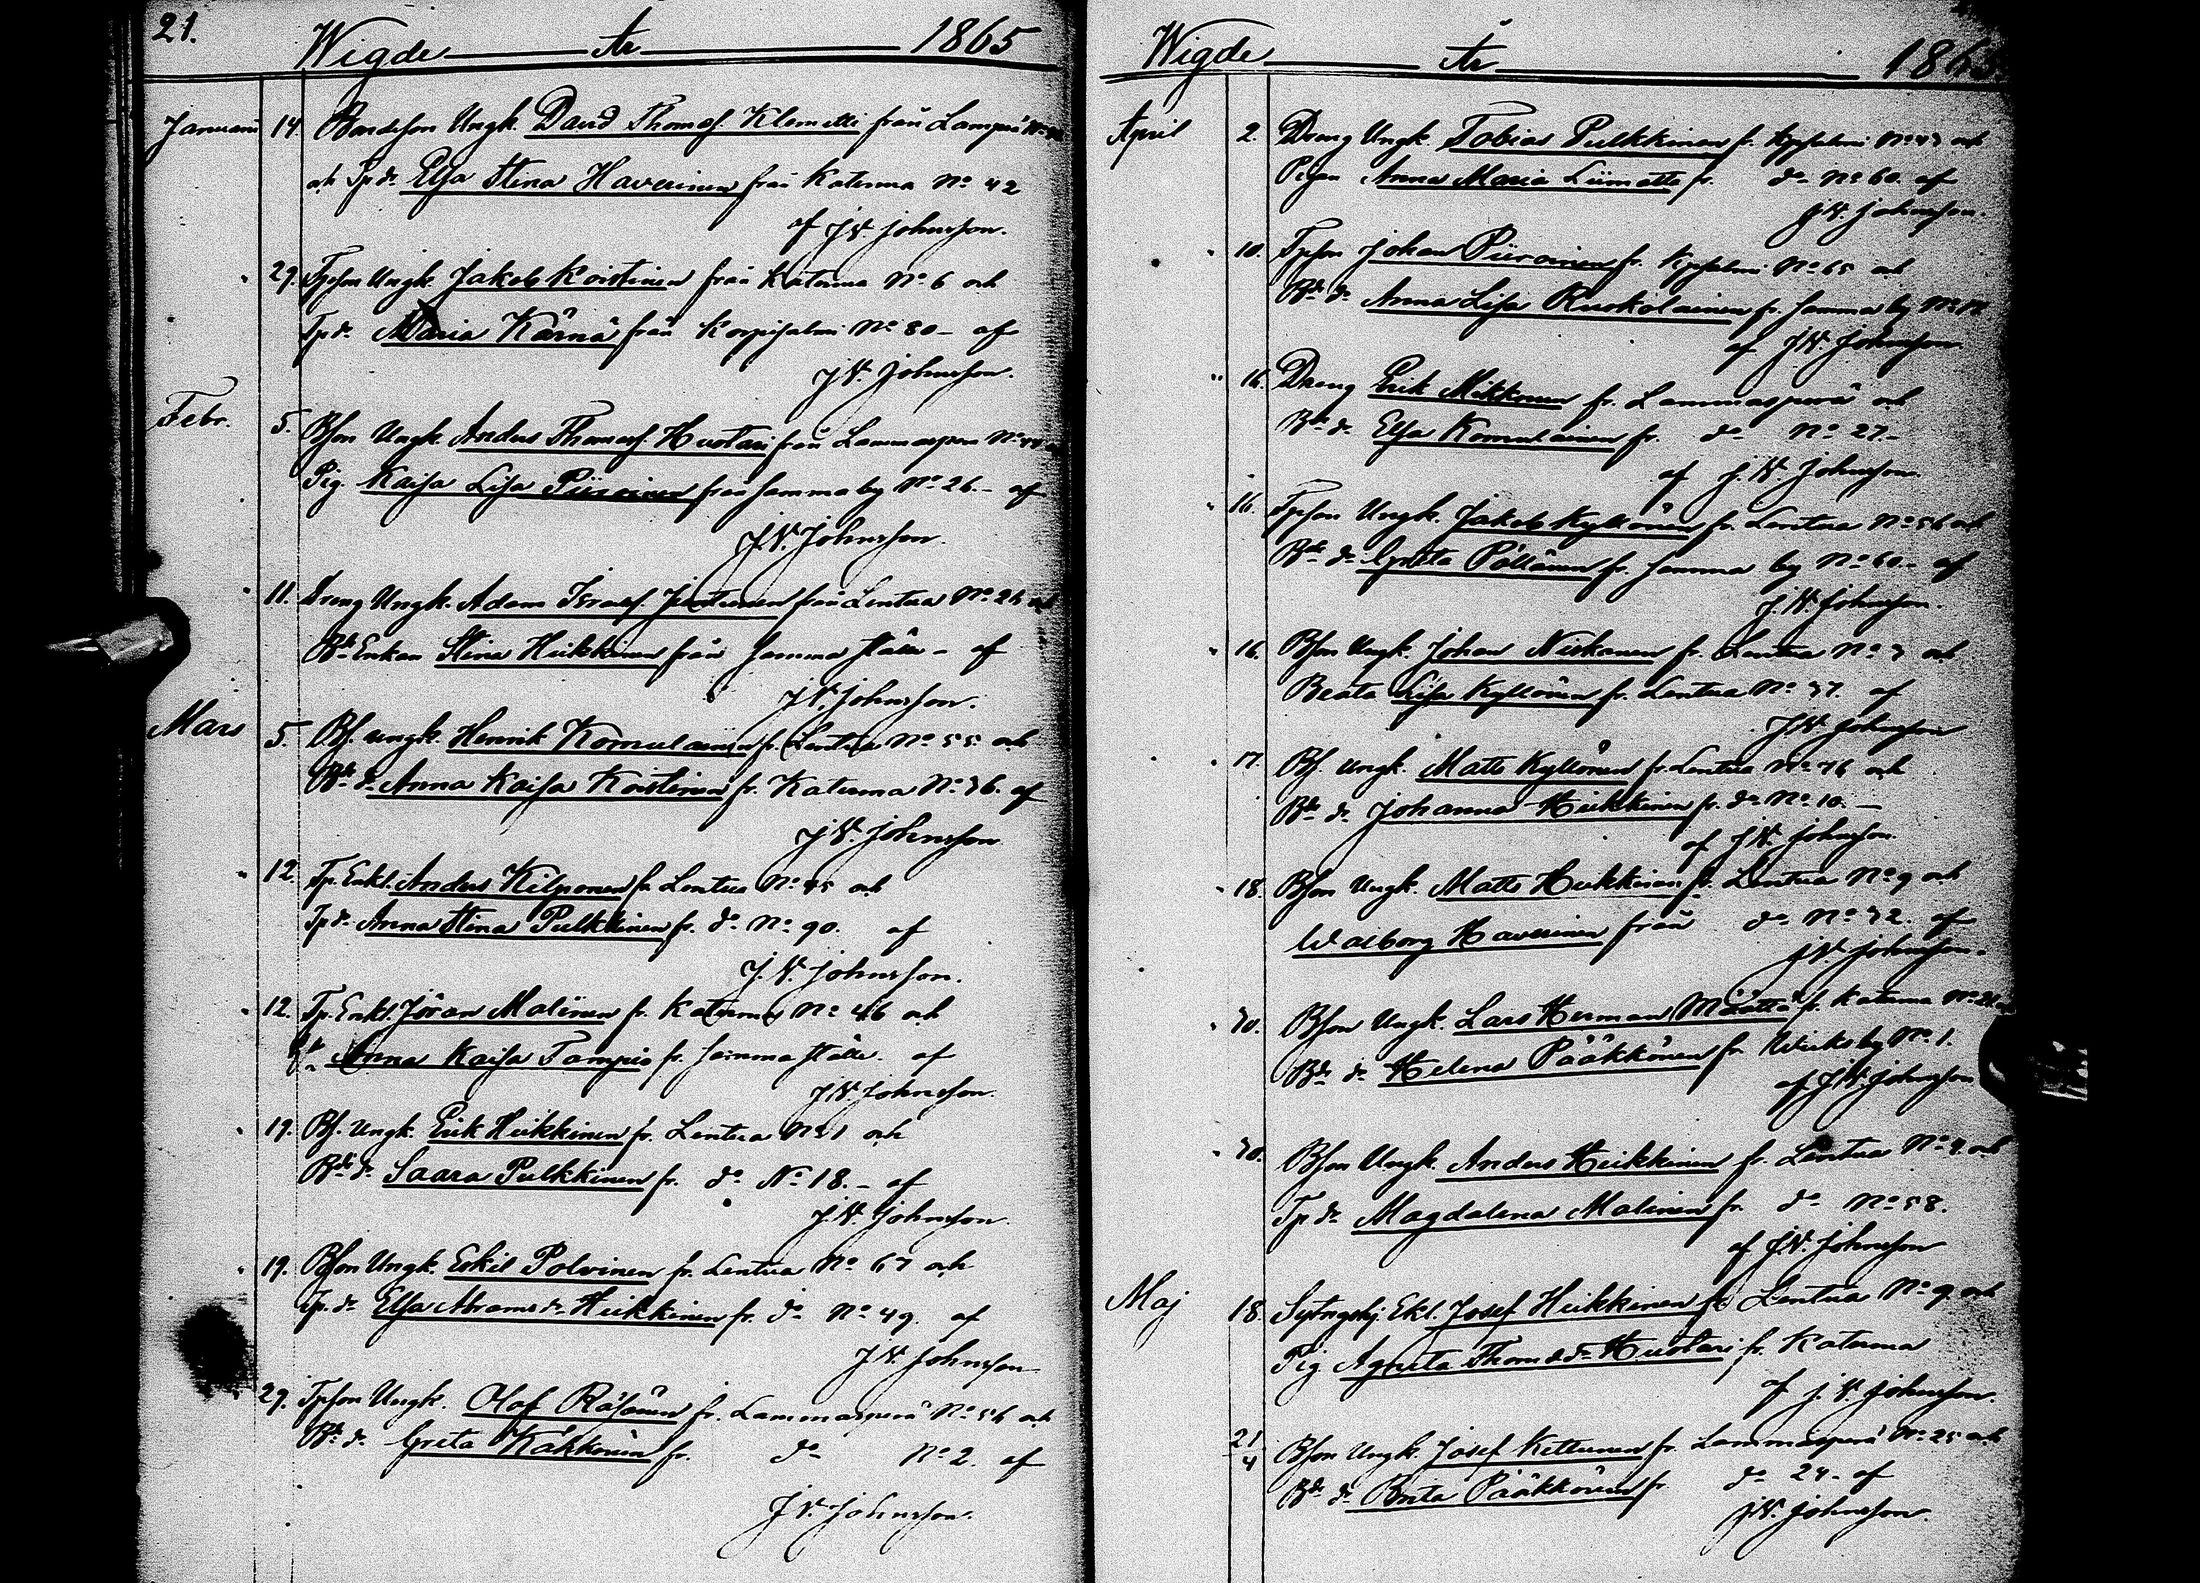 21.
Wigde År 1865
Januari 14. Bondeson Ungk. David Thomess. Klemetti från Lamperä
och Tp dr. Elsa Stina Haverinen från Katerma No 42
af J.W. Johnsson.
29. Tpson Ungk. Jakob Koistinen från Katerma No 6 och
Tp dr. Maria Kärnä från Korpisalmi No 80 - af
J.W. Johnsson.
Febr. 5. Bson Ungk. Anders Thomass. Huotari från Lammasperä
Pig. Kaisa Lisa Piirainen från samma by No 26. - af
J.W. Johnsson.
11. Dreng Ungk. Adam Israelss. Juntunen från Lentua No 26 och
Bde Enkan Stina Heikkinen från samma ställe - af
J.W. Johnsson.
Mars 5. Bs. ungk. Henrik Komulainen fr. Lentua No 55 och
Bde dr. Anna Kaisa Koistinen fr. Katerma No 36. af
J.W. Johnsson
12. Tp. Enkl. Anders Kilponen fr. Lentua No 45 och
Tp dr. Anna Stina Pulkkinen fr. do No 90. af
J.W. Johnsson.
12. Tp. Enkl. Jöran Malinen fr. Katerma No 46 och
Anna Kaisa Tampio fr. samma ställe. af
J.W. Johnsson.
19. Bs. Ungk. Erik Heikkinen fr. Lentua No 1 och
Bde dr. Saara Pulkkinen fr. do No 18. - af
J.W. Johnsson
19. Bson Ungk. Eskil Polvinen fr. Lentua No 67 och
Tp. dr. Elsa Abrams dr. Heikkinen fr. do No 49. af
J.W. Johnsson
29. Tpson Ungk. Olof Räsänen fr. Lammasperä No 56 och
Bde dr. Greta Kähkönen fr. do No 2. af
J.W. Johnsson.
Wigde År 1865
April 2. Dreng Ungk. Tobias Pulkkinen fr. Kpsalmi No 43 och
Pigan Anna Maria Liimatta fr. do No 60. af
J.W. Johnsson.
10. Tpson Johan Piirainen fr. Kpsalmi No 65 och
Bde dr. Anna Lisa Ruokolainen fr. samma by
af J.W. Johnsson
16. Dreng Erik Mikkonen fr. Lammasperä och
Bde dr. Elsa Komulainen fr. do No 27. -
af J.W. Johnsson
16. Tpson Ungk. Jakob Kyllönen fr. Lentua No 56 och
Bde dr. Greta Pöllänen fr. samma by No 60. - af
J.W. Johnsson.
16. Bson Ungk. Johan Niskanen fr. Lentua No 3 och
Beata Lisa Kyllönen fr. Lentua No 37. af
J.W. Johnsson
17. Bs. Ungk. Matts Kyllönen fr. Lentua No 76 och
Bde dr. Johanna Heikkinen fr. do No 10. -
af J.W. Johnsson.
18. Bson Ungk. Matts Heikkinen fr. Lentua No 9 och
Walborg Haverinen från do No 32. af
J.W. Johnsson.
30. Bson Ungk. Lars Herman Määttä fr. Katerma
Bde dr. Helena Pääkkönen fr. Wieksby No 1.
af J.W. Johnsson
30. Bson Ungk. Anders Heikkinen fr. Lentua No 4. och
Tp dr. Magdalena Malinen fr. do No 58.
af J.W. Johnsson
Maj 18. Sytngshj. Ekl. Josef Heikkinen fr. Lentua No 9. och
Pig Agneta Thoms dr. Huotari fr. Katerma
af J.W. Johnsson.
21/4 Bson Ungk. Josef Kettunen fr. Lammasperä No 25 och
Bde dr. Brita Pääkkönen fr. do 24 - af
J.W. Johnsson.